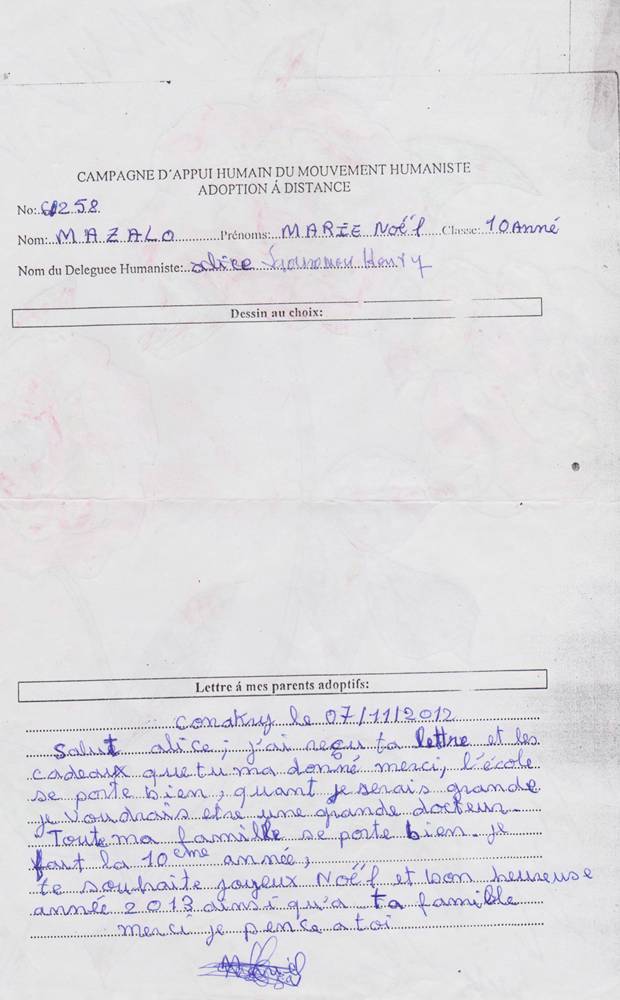 CAMPAGNE D'APPUI HUMAIN DU MOUVEMENT HUMANISTE
ADOPTION Á DISTANCE
No: 61258
Nom: MAZALO Prénoms: MARIE Noël Classe: 10 Anné
Nom du Deleguee Humaniste: alice Henry
Dessin au choix:
Lettre á mes parents adoptifs:
Conakry le 07/11/2012
Salut alice; j'ai reçu ta lettre et les
cadeaux que tu ma donné merci, l'école
se porte bien, quant je serais grande
je voudrais etre une grande docteur.
Toute ma famille se porte bien. je
fait la 10ème année,
te souhaite joyeux Noël et bon heureuse
année 2013 ainsi qu'a ta famille
merci je pence a toi